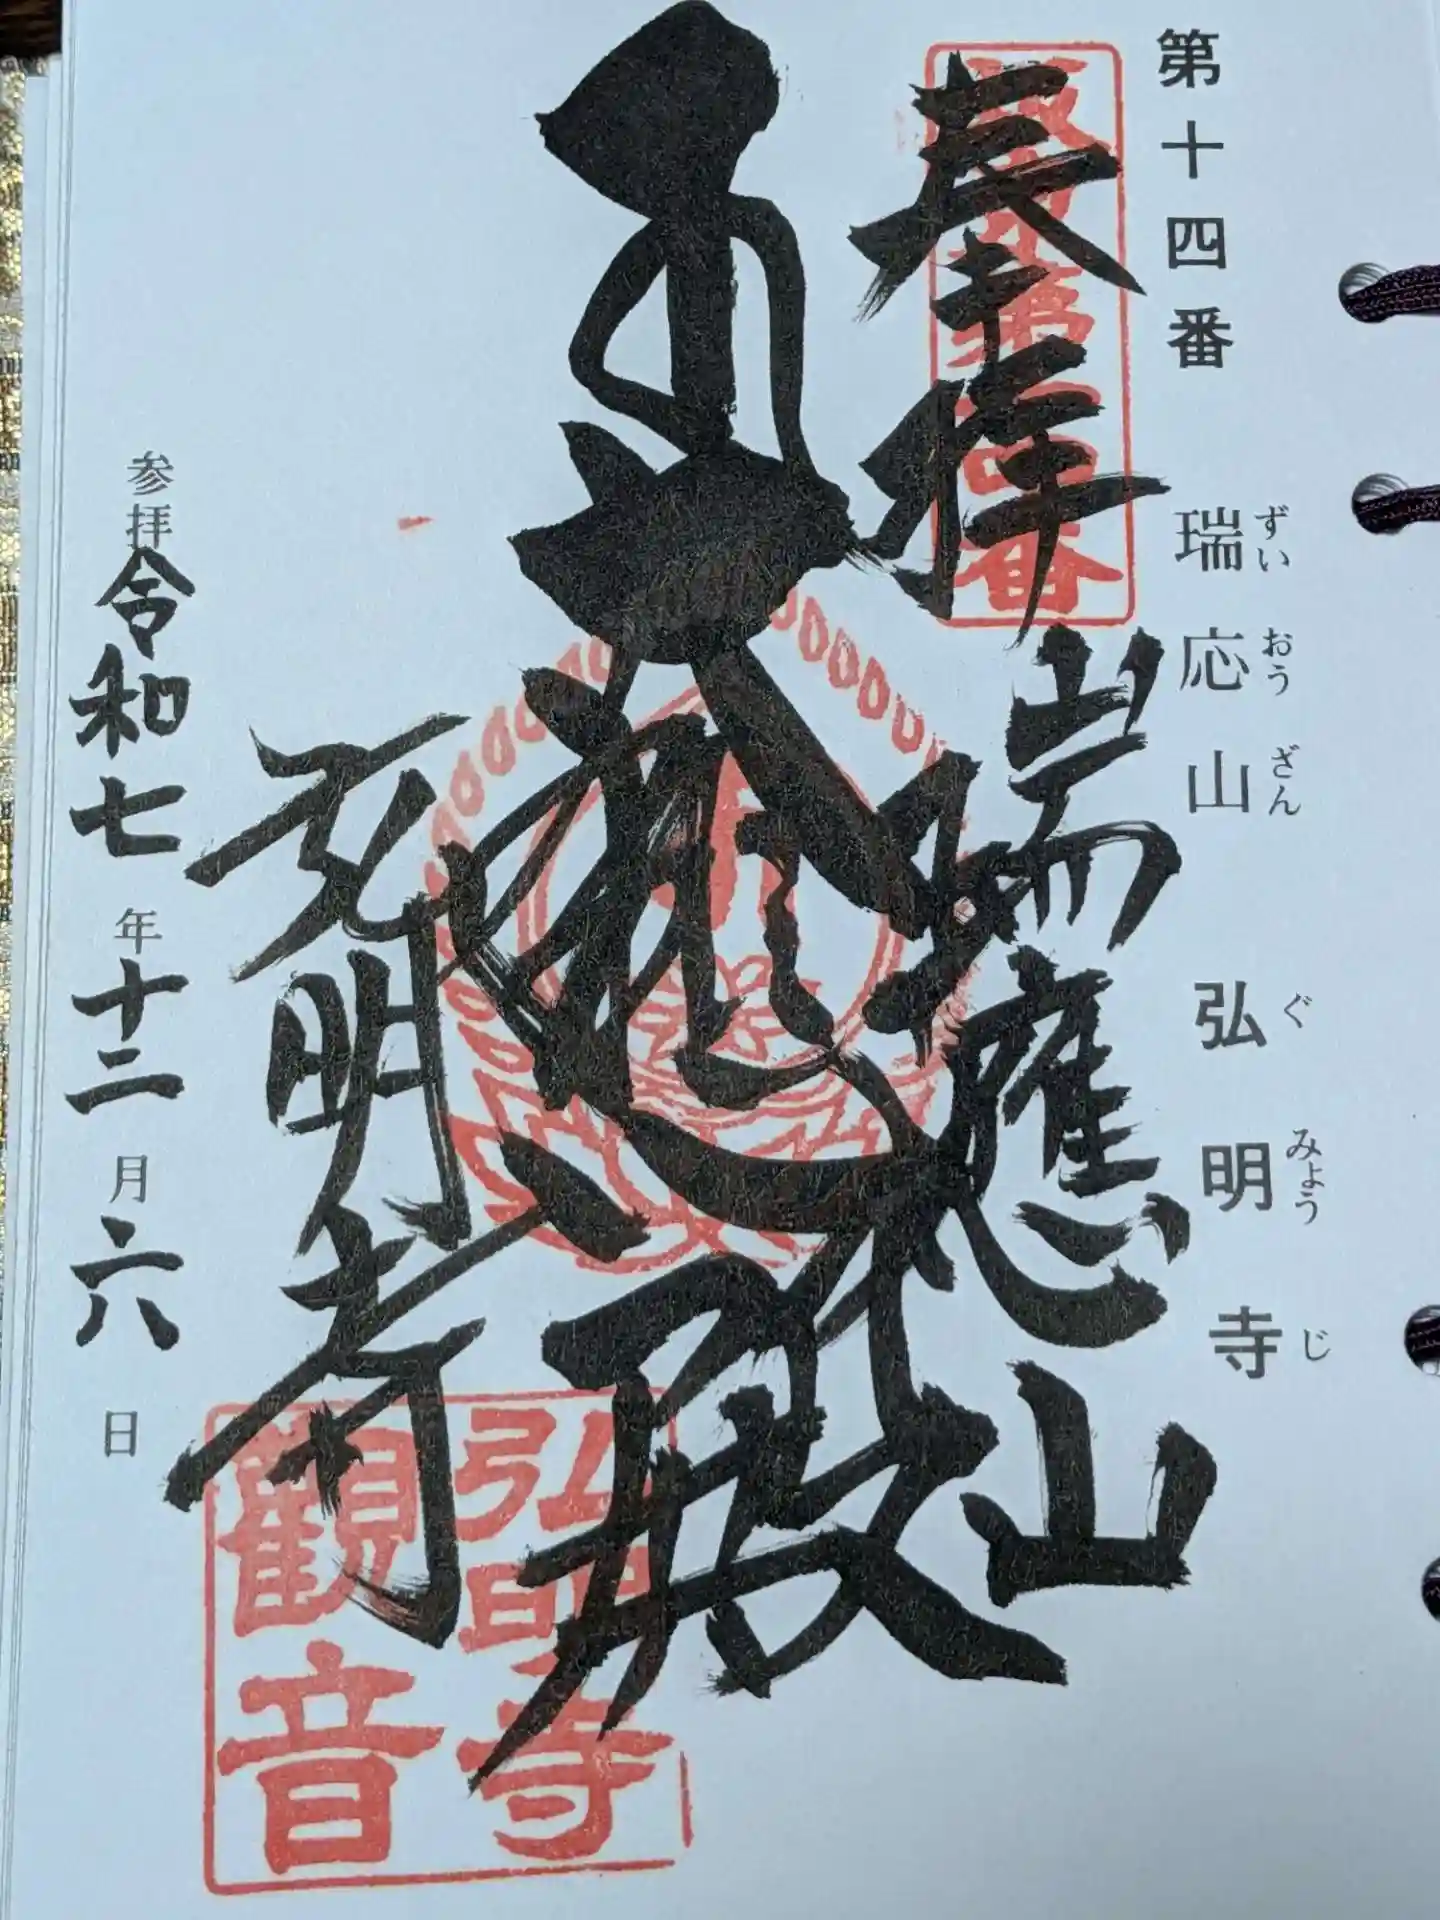 第十四番
瑞応山 弘明寺
ずいおうざん ぐみょうじ
奉拝
坂東第十四番
瑞應山
大悲殿
弘明寺
弘明寺
觀音
参拝令和七年十二月六日